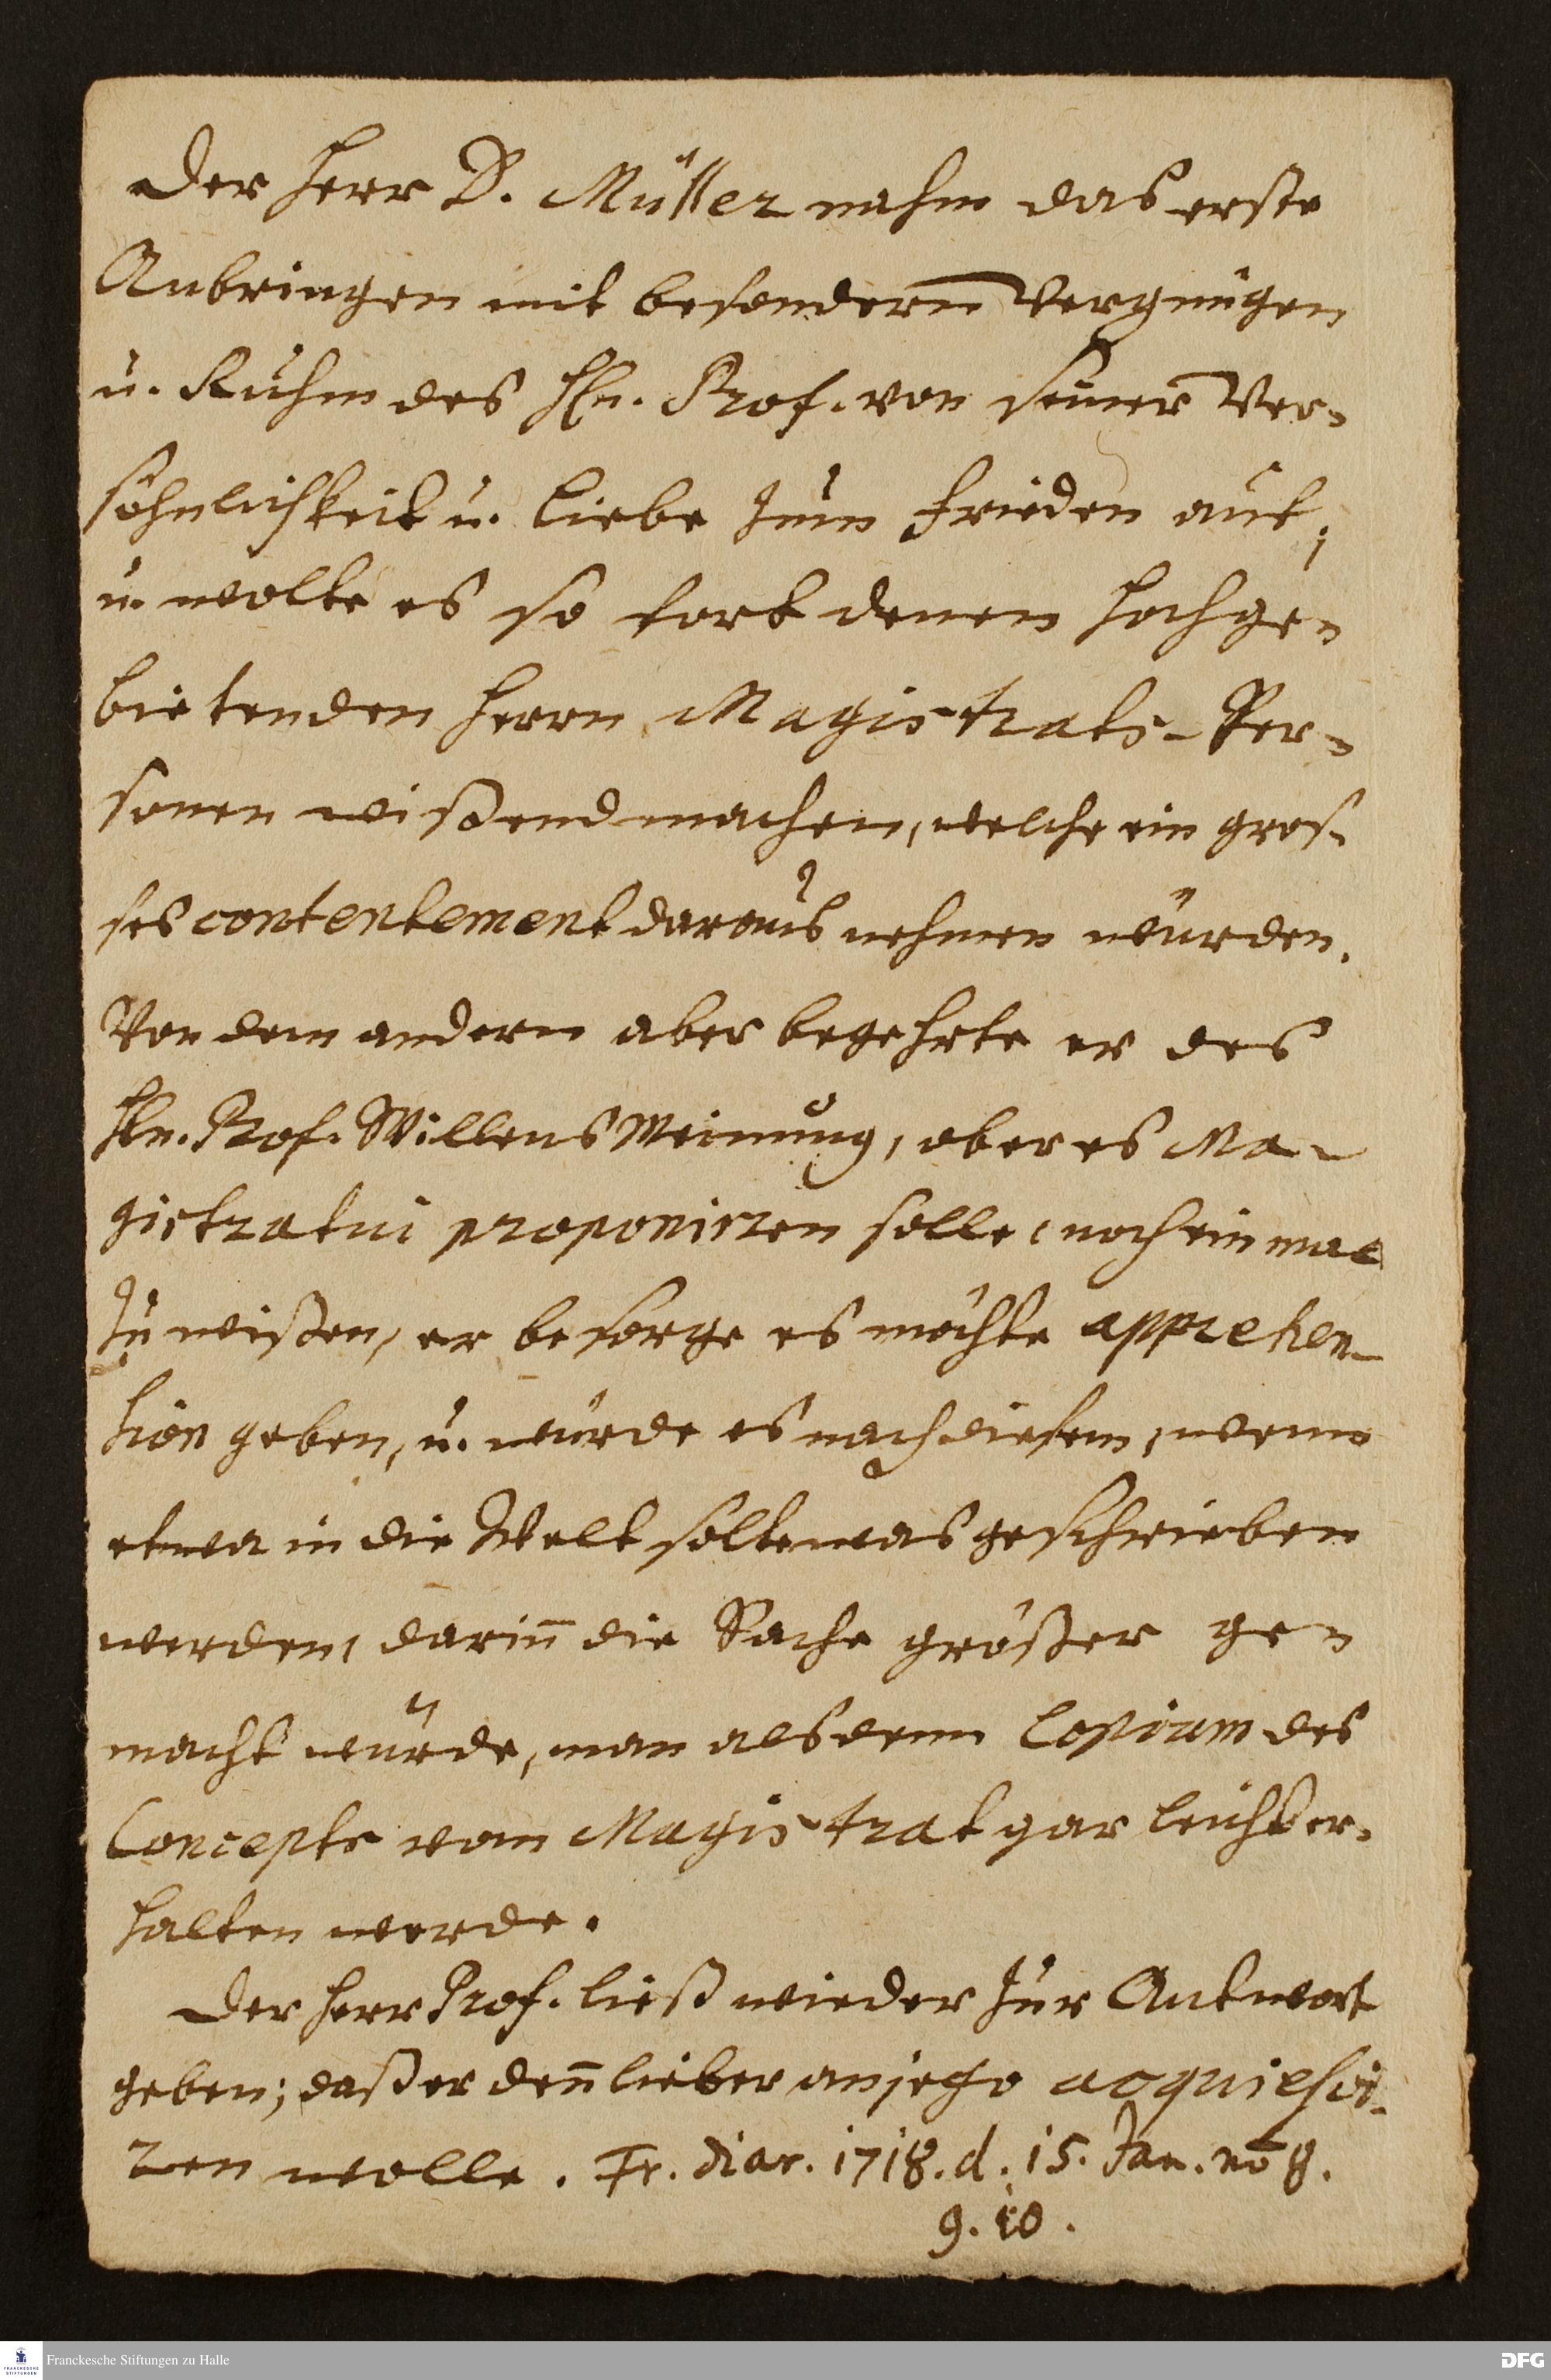 Der Herr D. Müller nahm das erste
Anbringen mit besonderm Vergnügen
u. Ruhm des Hn. Prof. von seiner Ver-
söhnlichkeit u. Liebe zum Frieden auf,
u. wolte es so fort denen Hochge-
bietenden Herrn Magistrats-Per-
sonen wißend machen, welche ein gros-
ses contentement daraus nehmen würden.
Von dem andern aber begehrte er des
Hn. Prof. Willens Meinung, ob er es Ma-
gistratui proponiren solle, noch ein mal
zu wißen, er besorge es möchte apprehen-
sion geben, u. würde es nach diesem, wenn
etwa in die Welt solte was geschrieben
werden, darin̅ die Sache größer ge-
macht würde, man alsdenn Copiam des
Concepts vom Magistrat gar leicht er-
halten werde.
Der Herr Prof. ließ wieder zur Antwort
geben; daß er den̅ lieber anjetzo acquiesci-
ren wolle. Fr. diar. 1718. d. 15. Jan. no 8.
9. 10.
Franckesche Stiftungen zu Halle
FRANCKESCHE
STIFTUNGEN
DFG